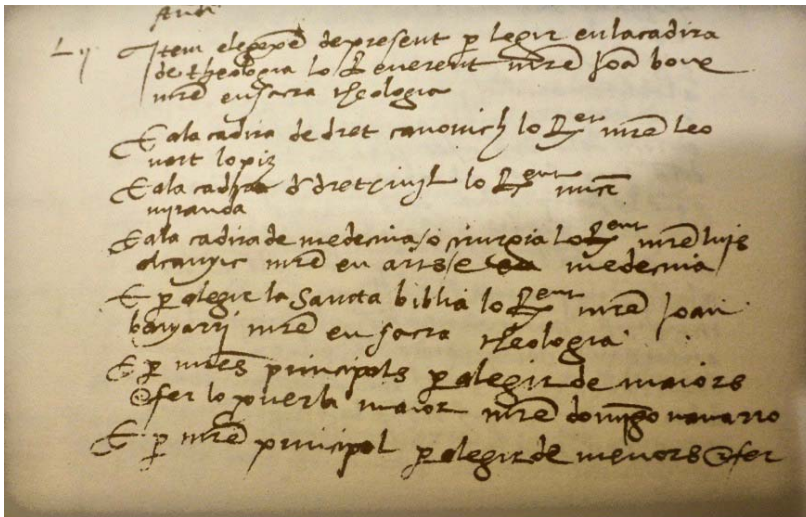 Item elegexē de present p̄ legir en la cadira
de theologia lo Reverent mr̄e Joā bove
mr̄e en sacra theologia
E a la cadira de dret canonich lo R.er mr̄e leo
nart lopiz
E a la cadira d dret civil lo R.ent mīc̄e
miranda
E a la cadira de medecina / o cirurgia lo R.ent mr̄e luis
alcanyic mr̄e en arts / e medecina
E p̄ a legir la Sancta biblia lo R.ent mr̄e Joan
banyarri mr̄e en sacra theologia
E p̄ mr̄es principals p̄ a legir de maiors
e fer lo proverbi maior mr̄e domīgo navarro
E p̄ mr̄e principal p̄ a legir de menors e fer